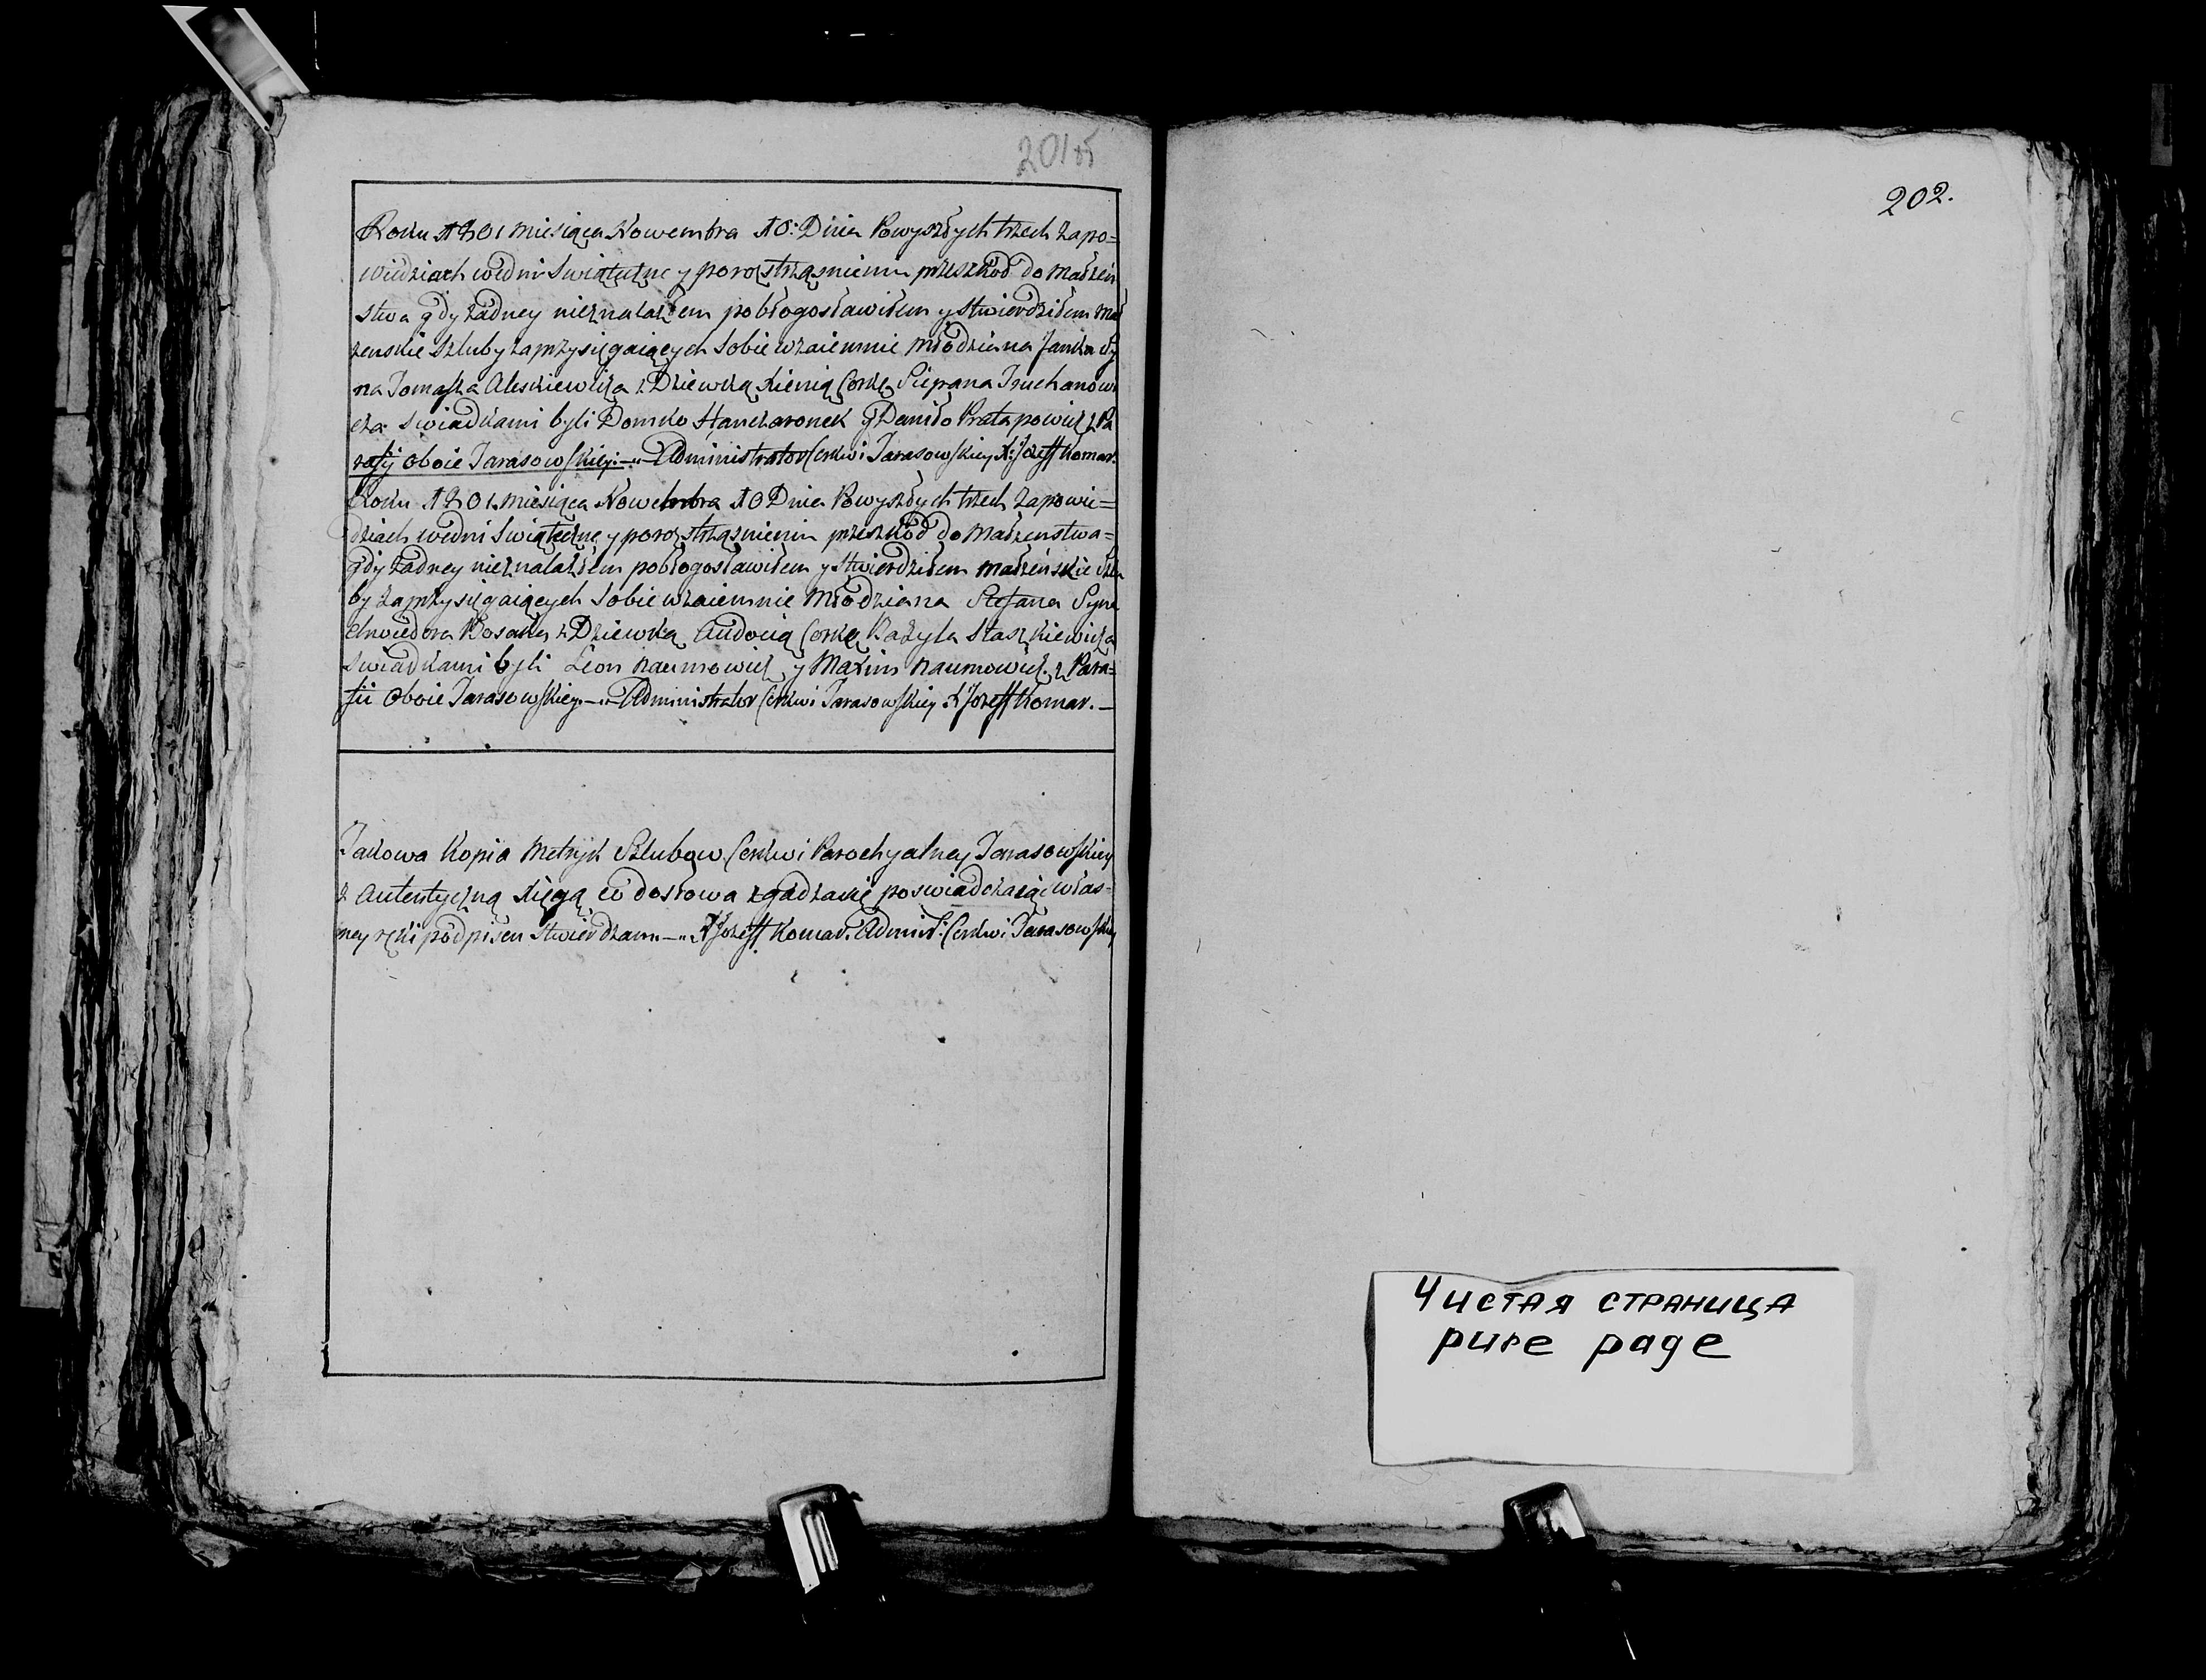 201 об
Roku 1801 miesiąca Nowembra 10: Dnia Powyszłych trzech zapo=
wiedziach w edni Swiąteczne y poroztrząsnieniu przeszkod do małżeń
stwa gdy żadney nieznalazłem pobłogosławiłem y stwierdziłem mał
żenskie Szluby zaprzysięgaiących sobie wzaiemnie młodziana Janka Sy
na Tomasza Aleskiewicza z Dziewką Xienią Corką Sciepana Truchanowi
cza. Swiadkami byli Domko Hanczaronek y Daniło Pratapowicz z Pa
rafij oboie Tarasowskiey.—„Administrator Cerkwi Tarasowskiey X: Jozeff Komar.
Roku 1801. miesiąca Nowembra 10 Dnia Powyszłych trzech zapowie=
dziach w edni Swiąteczne y poroztrząsnieniu przeszkod do Małżenstwa=
gdy żadney nieznalazłem pobłogosławiłem y stwierdziłem małżeńskie Szlu
by zaprzysięgaiących sobie wzaiemnie Młodziana Stefana Syna
Chwiedora z Dziewką Audocią Corką Bazyla Staszkiewicza
Swiadkami byli Leon Naumowicz y Maxim Naumowicz z Para=
fii Oboie Tarasowskiey.—„Administrator Cerkwi Tarasowskiey X Jozeff Komar.—
Takowa Kopia Metryk Szlubow Cerkwi Parochyalney Tarasowskiey
z Autentyczną Xięgą co do słowa zgadzaśię poswiadczaiąc włas=
ney ręki podpisem stwierdzam.—„X Jozeff Komar. Admins: Cerkwi Tarasowskiey
202.
Чистая страница
pure page